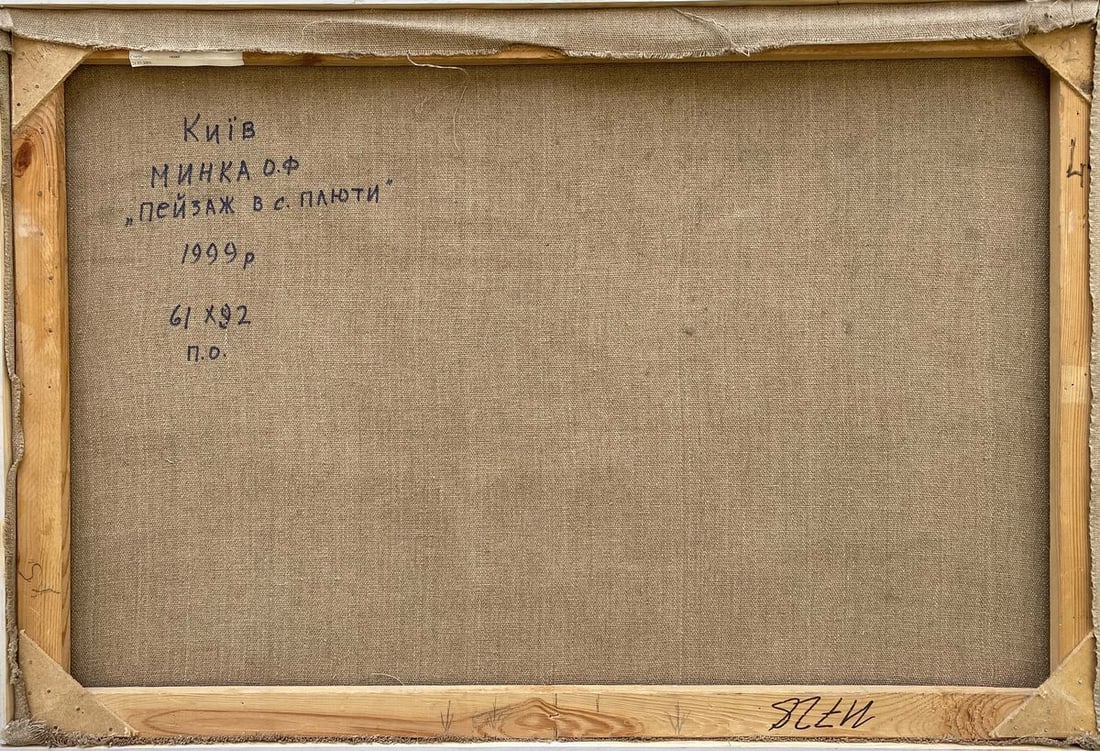 Київ
МИНКА О.Ф
„ПЕЙЗАЖ В с. ПЛЮТИ"
1999р
61 х92
П.О.